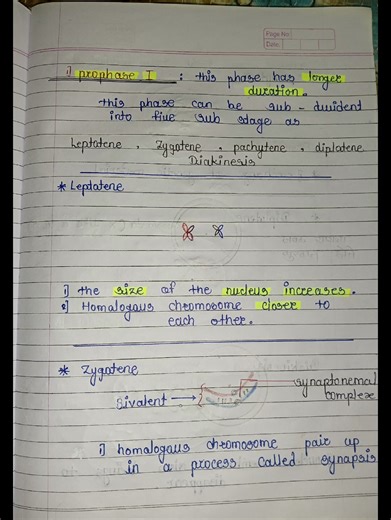 Page No.
Date:
i) prophase I : this phase has longer
duration.
this phase can be sub-divident
into five sub stage as
Leptotene, Zygotene, pachytene, diplotene
Diakinesis
* Leptotene
1) the size of the nucleus increases.
2) Homologous chromosome closer to
each other.
* Zygotene
synaptonemal
complex
Bivalent →
1) homologous chromosome pair up
in a process called synapsis